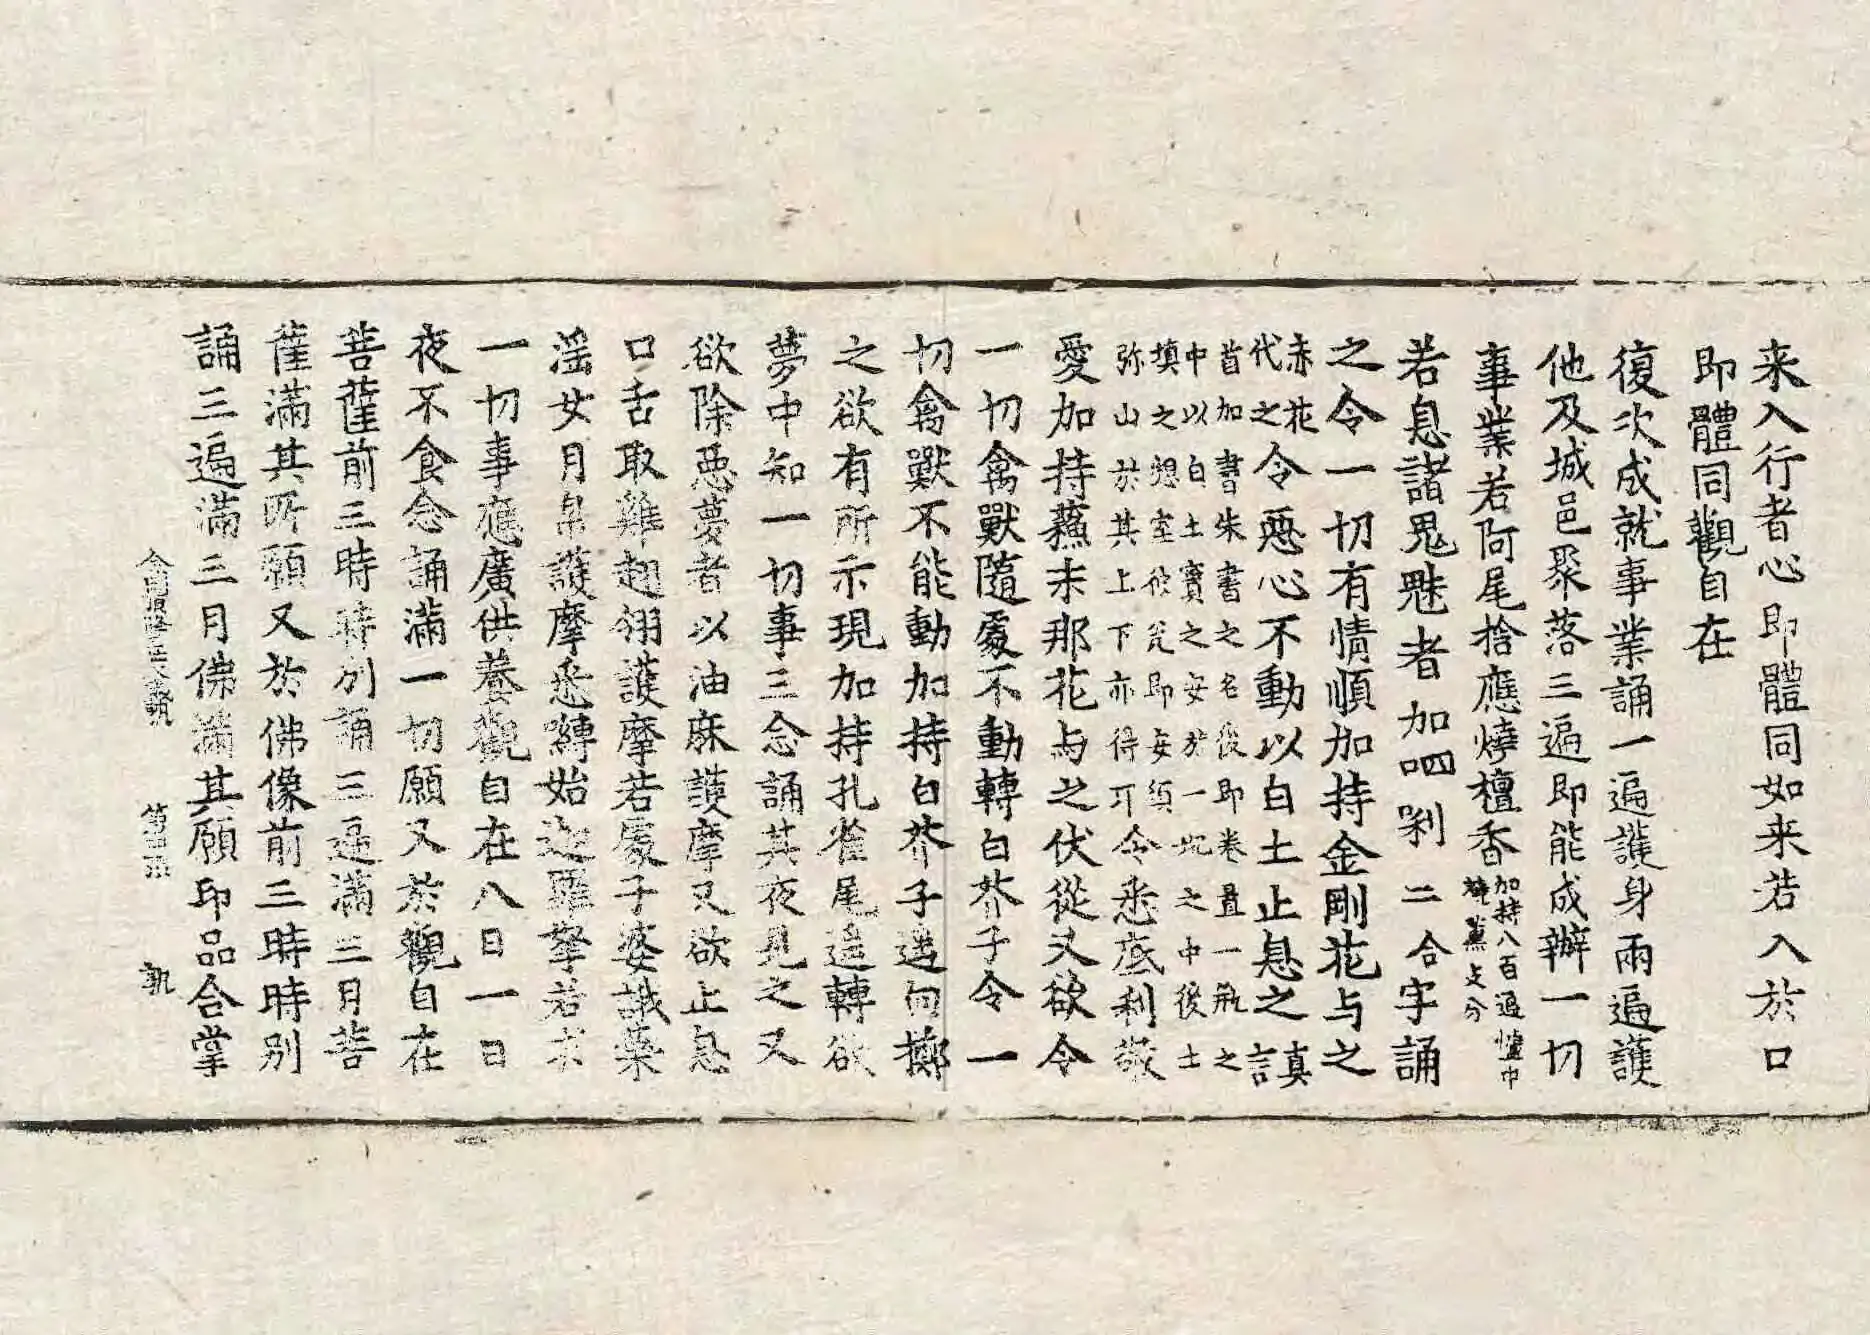 来入行者心即體同如来若入於口
即體同觀自在
復次成就事業誦一遍護身兩遍護
他及城邑聚落三遍即能成辦一切
事業若阿尾捨應燒檀香加持八百遍爐中
燒薰文分
若息諸鬼魅者加呬唎二合字誦
之令一切有情順加持金剛花与之
赤花
代之令惡心不動以白土止息之真
言
首加書朱書之名後即卷置一瓶之
中以白土實之安於一此之中後土
填之想室彼瓮即安須
弥山於其上下亦得可令悉底利敬
愛加持蘓末那花与之伏從又欲令
一切禽獸隨處不動轉白芥子令一
切禽獸不能動加持白芥子遙向擲
之欲有所示現加持孔雀尾遥轉欲
夢中知一切事三念誦其夜見之又
欲除惡夢者以油麻護摩又欲止息
口舌取雞翅翎護摩若處子婆誐藥
淫女月帛護摩悉嚩始迦羅拏若求
一切事應廣供養觀自在八日一日
夜不食念誦滿一切願又於觀自在
菩薩前三時時別誦三遍滿三月菩
薩滿其所願又於佛像前三時時別
誦三遍滿三月佛滿其願印品合掌